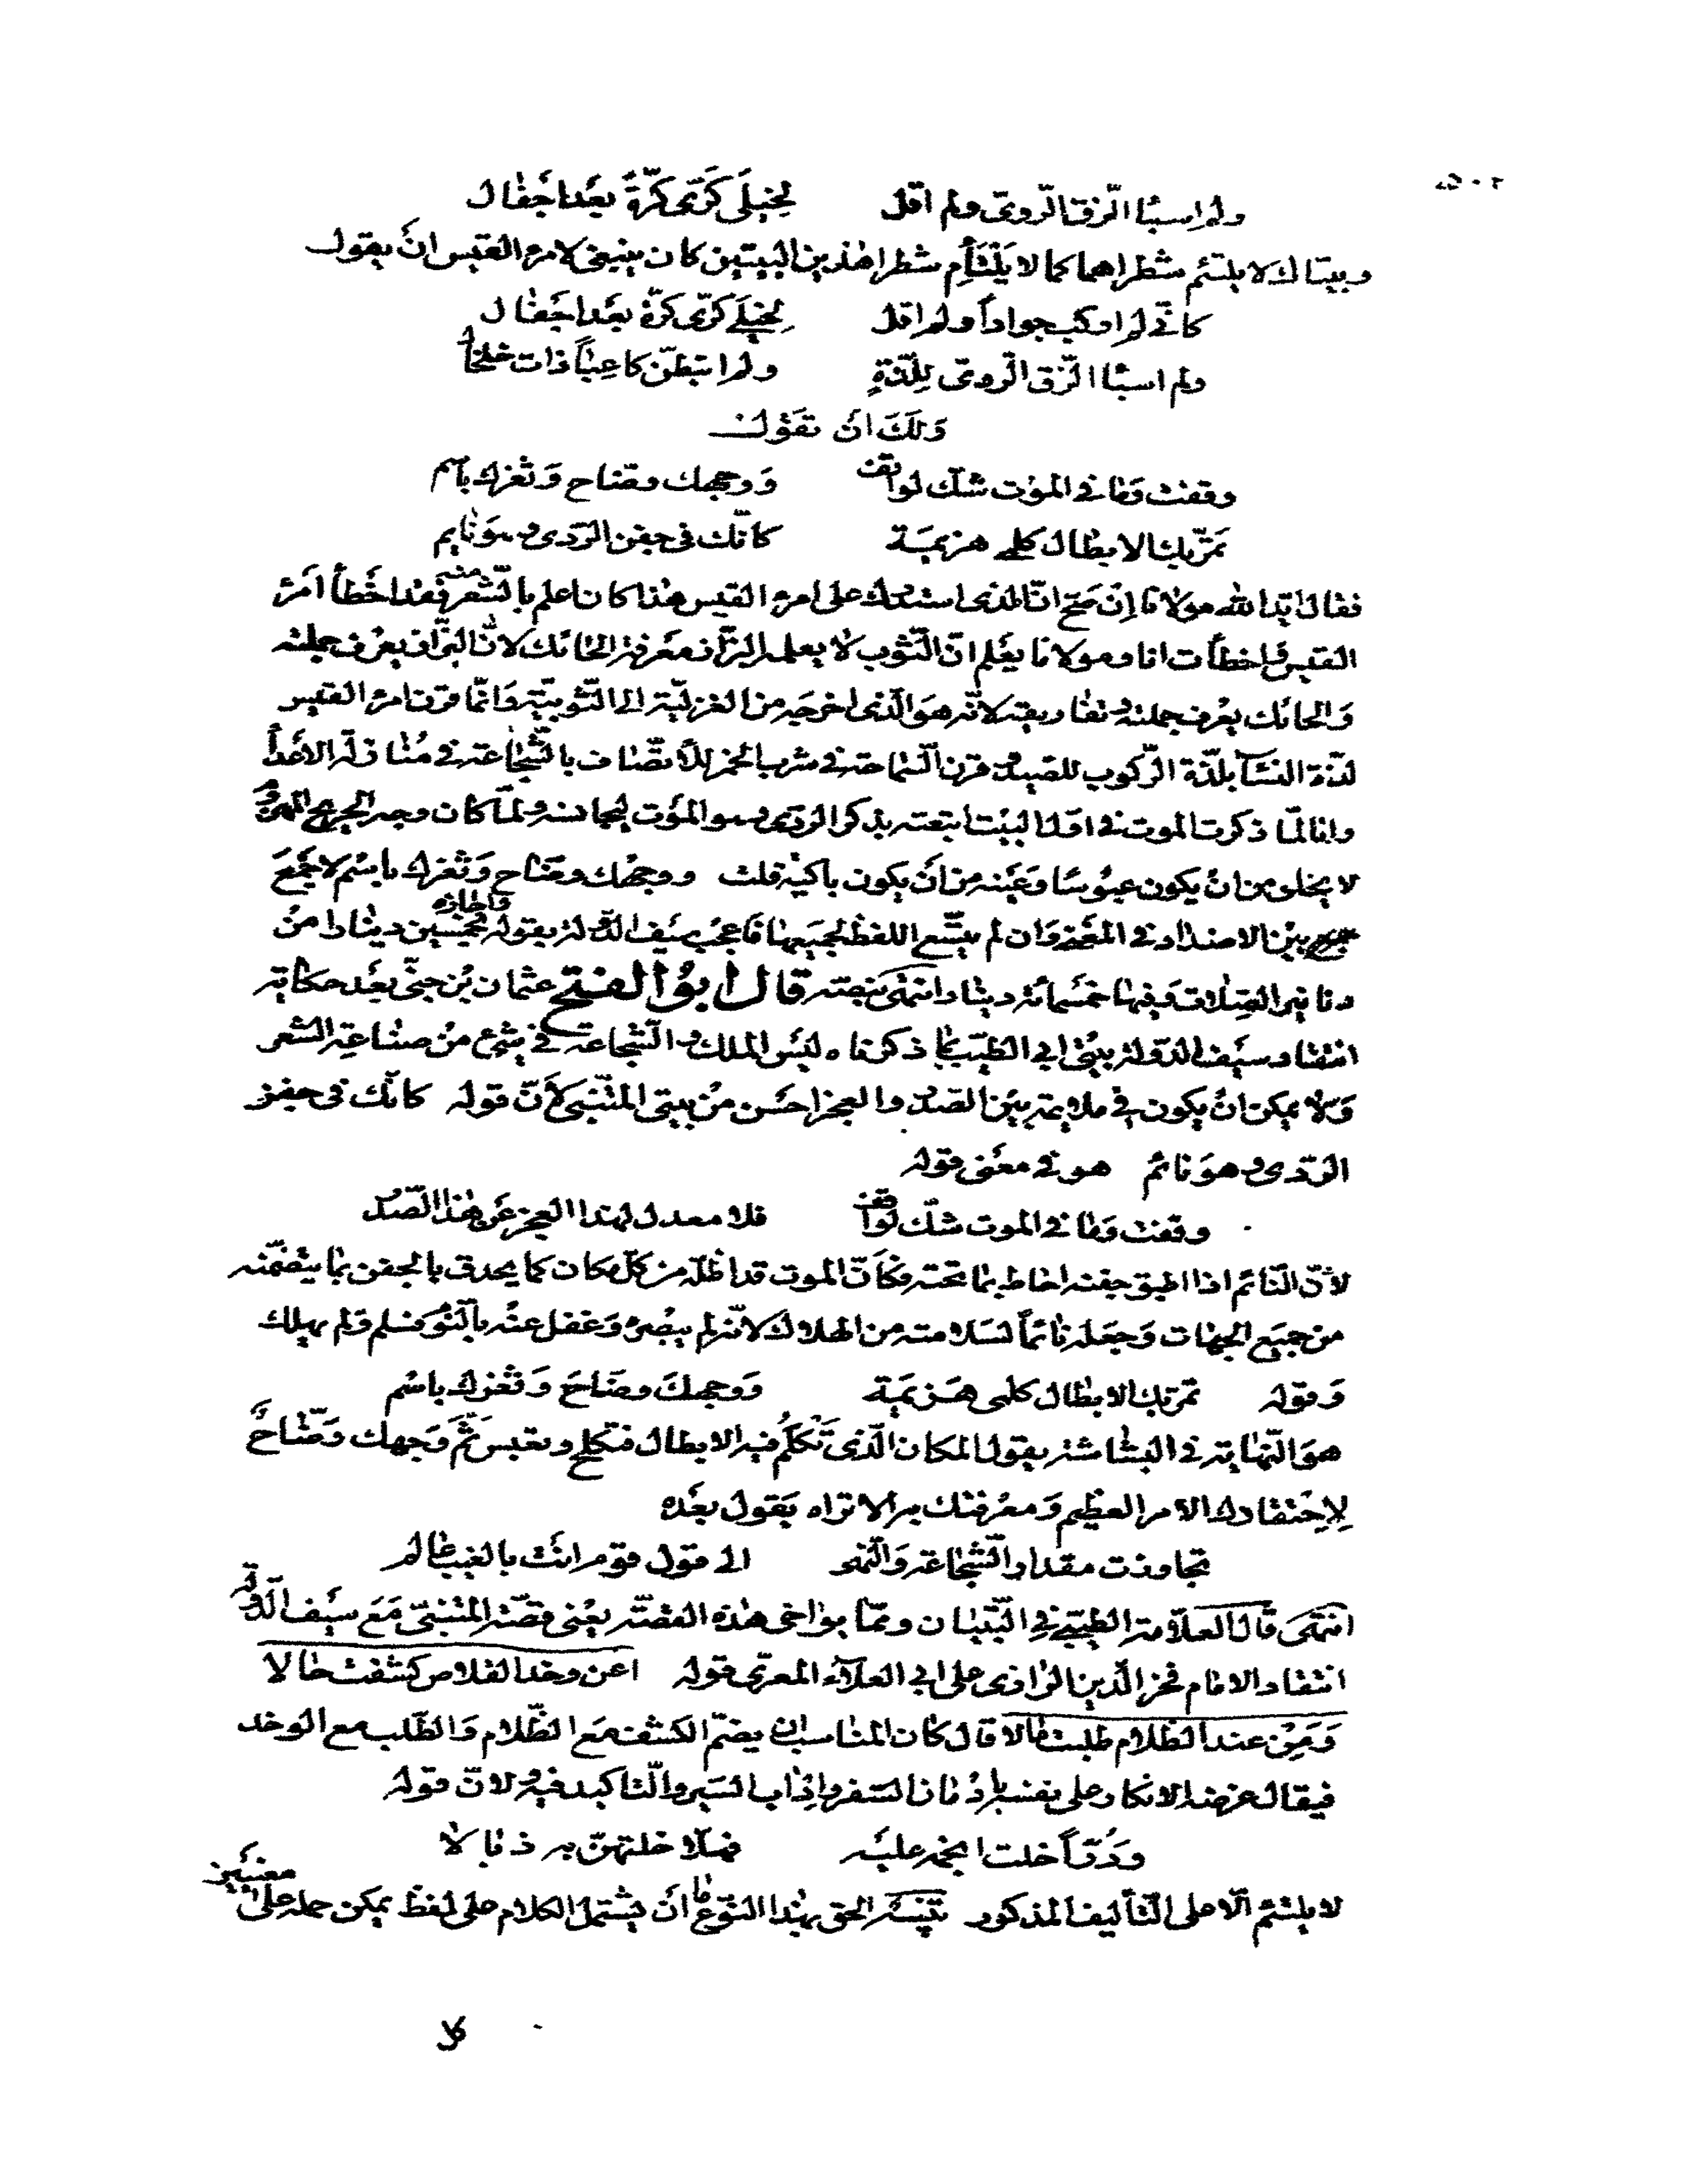 ولم اسبأ الزق الروي ولم اقل لخيلي كري كرة بعد اجفال
وبيتاك لا يلتئم شطراهما كما لا يلتئم شطرا هذين البيتين كان ينبغي لامرء القيس ان يقول
كاني لم اركب جوادا ولم اقل لخيلي كري كرة بعد اجفال
ولم اسبأ الزق الروي للذة ولم اتبطن كاعبا ذات خلخال
ولك ان تقول
وقفت وما في الموت شك لواقف ووجهك وضاح وثغرك باسم
تمر بك الابطال كلمى هزيمة كانك في جفن الردى وهو نايم
فقال ايد الله مولانا ان صح ان الذي استدرك على امرء القيس هذا كان اعلم بالشعر منه فقد اخطأ امرء
القيس واخطأت انا ومولانا يعلم ان الثوب لا يعلمه البزاز معرفة الحائك لان البزاز يعرف جملته
والحائك يعرف جملته وتفاريقه لانه هو الذي اخرجه من الغزلية الى الثوبية وانما قرن امرء القيس
لذة النسآء بلذة الركوب للصيد وقرن السماحة في شرب الخمر للاضياف بالشجاعة في منازلة الاعدآء
وانا لما ذكرت الموت في اول البيت اتبعته بذكر الردى وهو الموت ليجانسه ولما كان وجه الجريح المهزوم
لا يخلو من ان يكون عبوسا وعينه من ان يكون باكية قلت ووجهك وضاح وثغرك باسم لاجمع
بين الاضداد في المعنى وان لم يتسع اللفظ لجميعها فاعجب سيف الدولة بقوله واجازه بخمسين دينارا من
دنانير الصلات وفيها خمسمائة دينار انتهى بنصه قال ابو الفتح عثمان بن جني بعد حكاية
انتقاد سيف الدولة بيتي ابي الطيب كما ذكرنا ه ليس الملك والشجاعة في شيء من صناعة الشعر
ولا يمكن ان يكون في ملايمة بين الصدر والعجز احسن من بيتي المتنبي لان قوله كانك في جفن
الردى وهو نائم هو في معنى قوله
وقفت وما في الموت شك لواقف فلا معدل لهذا العجز عن هذا الصدر
لان النائم اذا اطبق جفنه احاط بما تحته فكأن الموت قد اظله من كل مكان كما يحدق بالجفن بما يتضمنه
من جميع الجهات وجعله نائما لسلامته من الهلاك لانه لم يبصره وغفل عنه بالنوم فسلم ولم يهلك
وقوله تمر بك الابطال كلمى هزيمة ووجهك وضاح وثغرك باسم
هو النهاية في البشاشة يقول المكان الذي تكلم فيه الابطال فتكلح وتعبس ثم وجهك وضاح
لاحتقارك الامر العظيم ومعرفتك به الا تراه يقول بعده
تجاوزت مقدار الشجاعة والنهى الى قول قوم انت بالغيب عالم
انتهى قال العلامة الطيبي في التبيان ومما يواخي هذه القصة يعني قصة المتنبي مع سيف الدولة
انتقاد الامام فخر الدين الرازي على ابي العلآء المعري قوله اعن وخد القلاص كشفت حالا
ومن عند الظلام طلبت مالا قال كان المناسب ان يضم الكشف مع الظلام والطلب مع الوخد
فيقال غرضه الانكار على نفسه ادمان السفر واداب السير والتاكيد فيه ولان قوله
ودرا خلت انجمه عليه فهلا خلتهن به ذبالا
لا يلتئم الا على التأليف المذكور تنبيه الحق بهذا النوع ما ان يشتمل الكلام على لفظ يمكن حمله على معنيين
كل